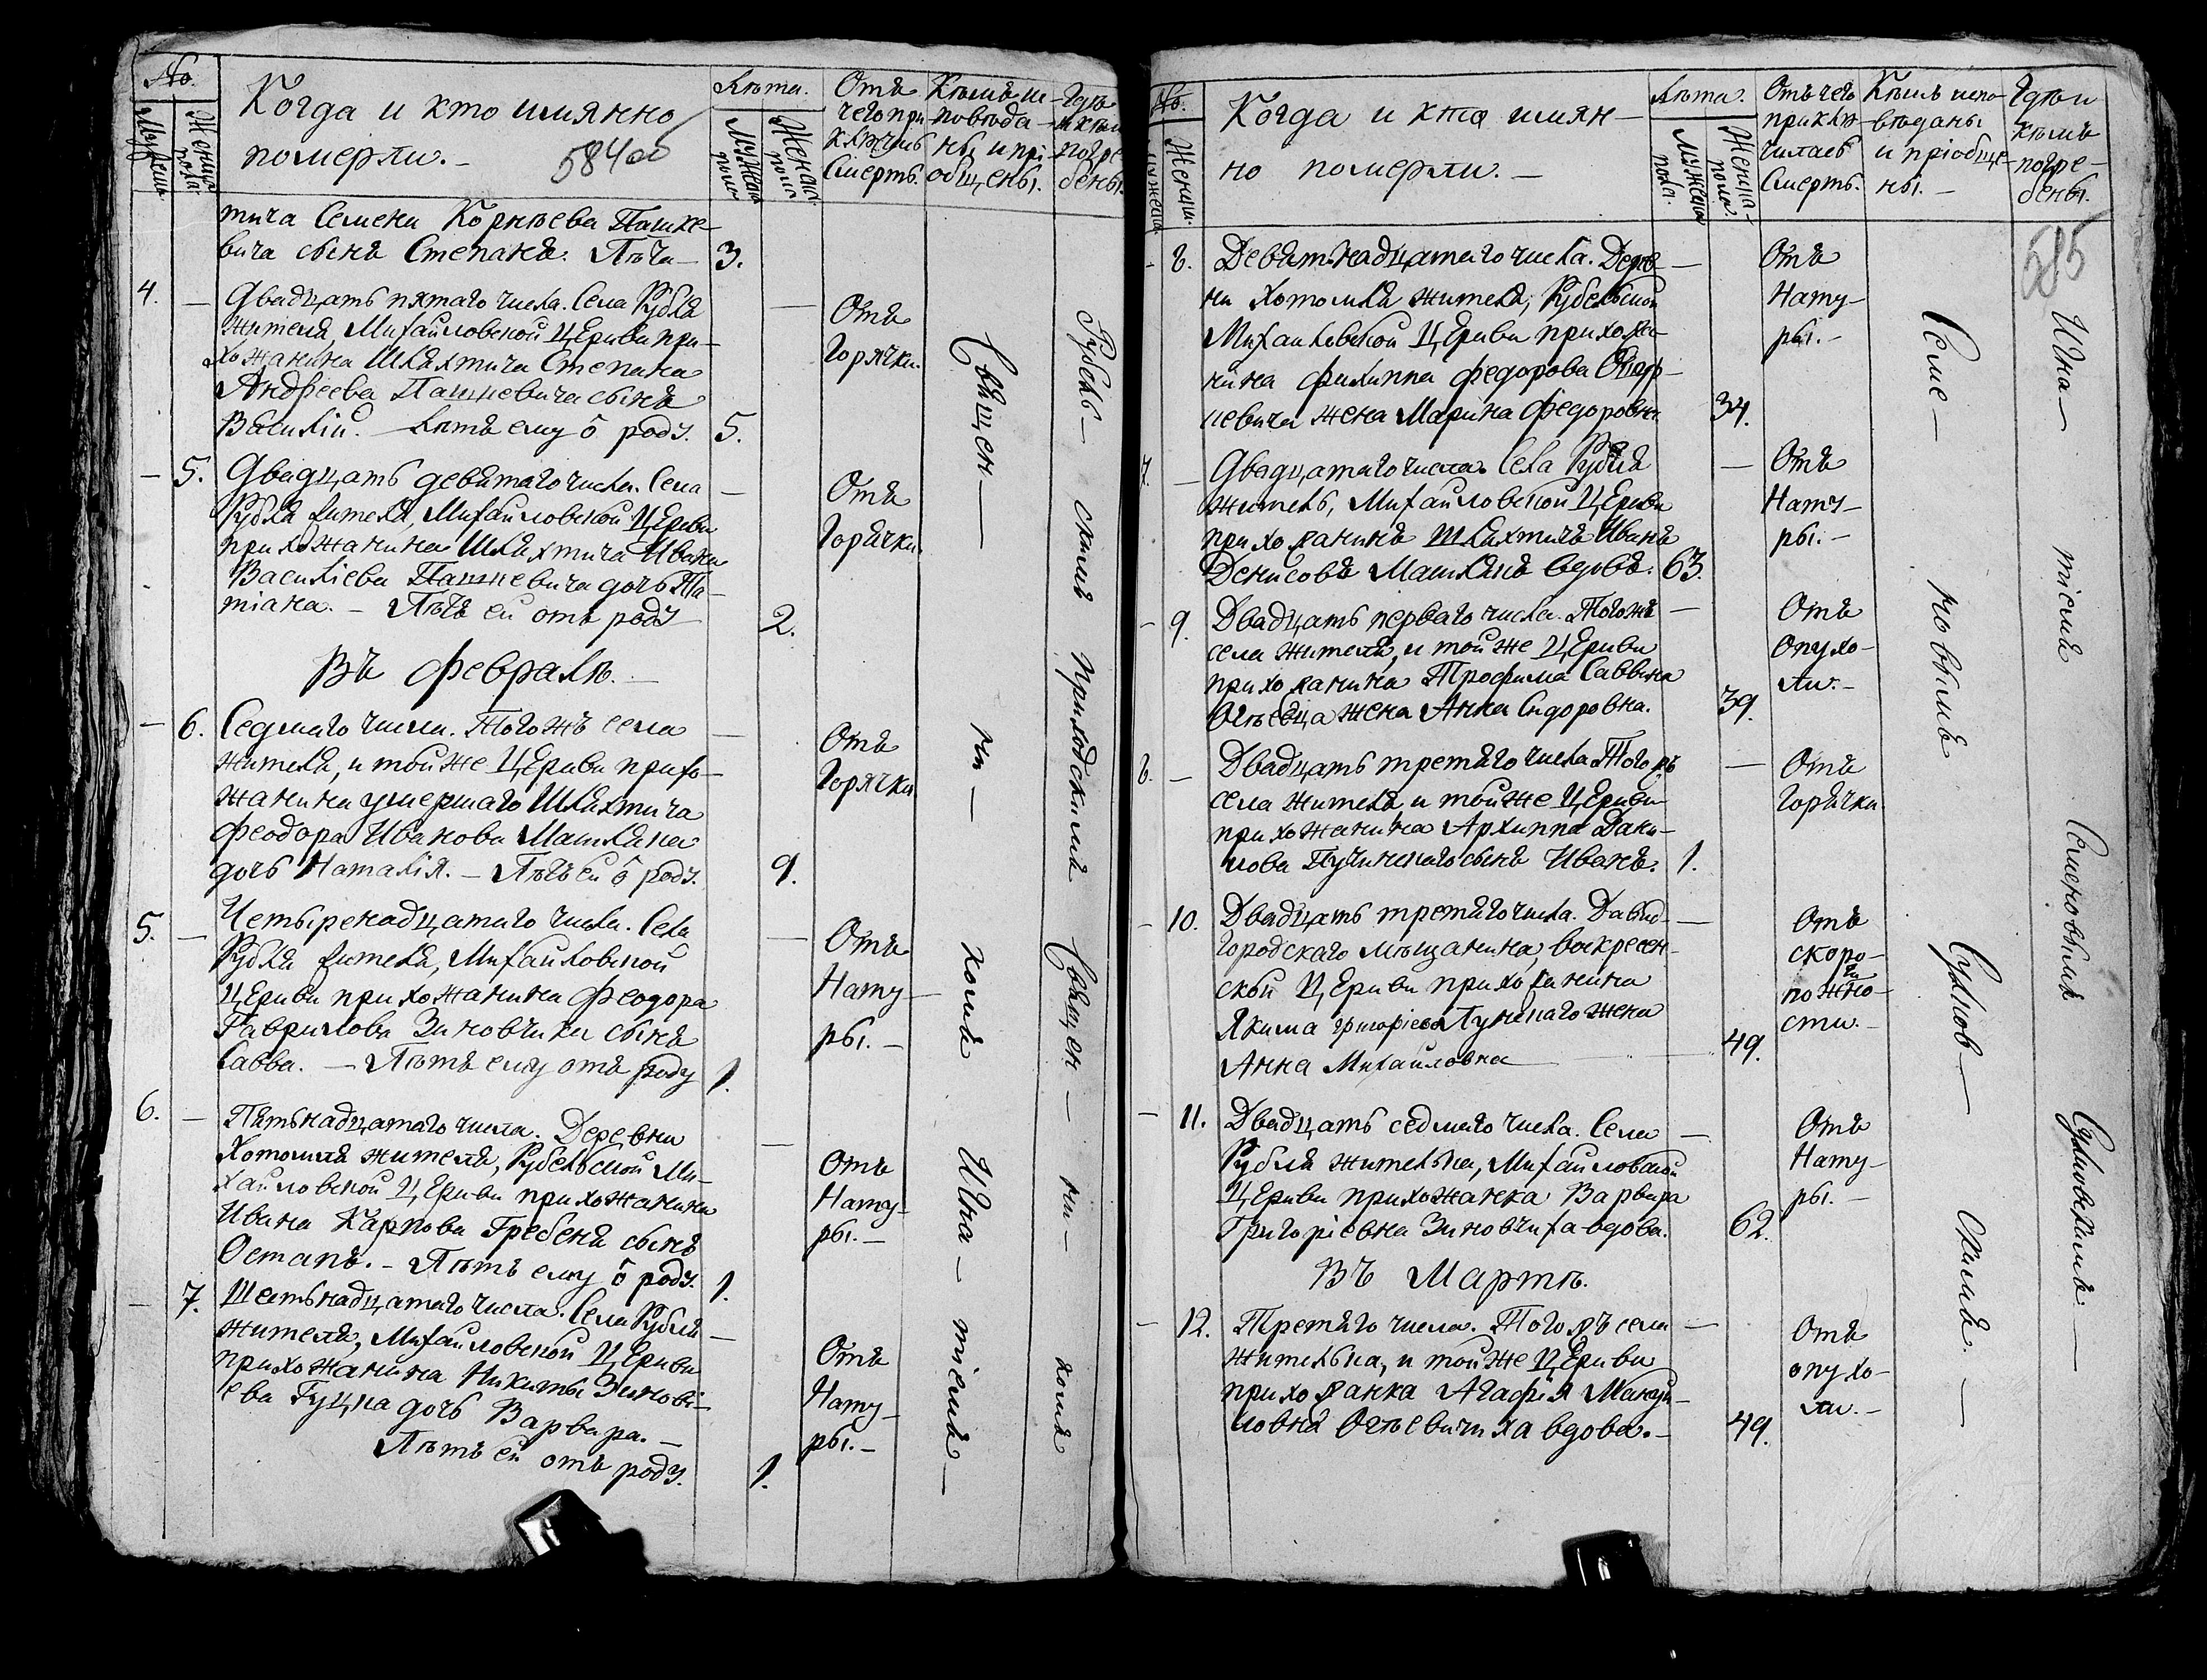 №.
Мужеска
Женска пола.
Когда и кто имянно
померли. –
584 об
Лѣта.
Мужеска пола
Женска пола
Отъ
чего при
ключис
Смерть.
Кѣмъ ис
повѣда
ны и прі
общены.
Гдѣ
и кѣмъ
погре
бены.
тича Семена Корнѣева Пашке-
вича сынъ Степанъ. Лѣта – 3.
4. – Двадцать пятаго числа. Села Рубля
жителя, Михайловской Церкви при-
хожанина Шляхтича Степана
Андреева Пашкевича сынъ
Василій. – Лѣтъ ему ѿ роду. 5.
Отъ
Горячки.
– 5. Двадцать девятаго числа. Села
Рубля жителя, Михайловской Церкви
прихожанина Шляхтича Ивана
Василіева Пашкевича дочь Та-
тіана. – Лѣтъ ей отъ роду 2.
Отъ
Горячки.
Въ Февралѣ. –
– 6. Седмаго числа. Тогожъ села
жителя, и той же Церкви прихо-
жанина умершаго Шляхтича
Феодора Иванова Машляна
дочь Наталія. – Лѣтъ ей ѿ роду. 9.
Отъ
Горячки
5. – Четыренадцатаго числа. Села
Рубля жителя, Михайловской
Церкви прихожанина Феодора
Гаврилова Зиновчика сынъ
Савва. – Лѣтъ ему отъ роду 1.
Отъ
Нату-
ры. –
6. – Пятьнадцатаго числа. Деревни
Хотомля жителя, Рубельской Ми-
хайловской Церкви прихожанина
Ивана Карпова Гребеня сынъ
Остапъ. – Лѣтъ ему ѿ роду. 1.
Отъ
Нату-
ры. –
– 7. Шестьнадцатаго числа. Села Рубля
жителя, Михайловской Церкви
прихожанина Никиты Зиновi-
ева Гуцка дочь Варвара. –
Лѣтъ ей отъ роду. 1.
Отъ
Нату-
ры. –
Священ – ни – комъ Игна – тіемъ –
Рубель – скимъ приходскимъ Священ – ни – комъ
№.
Мужеска
Женска.
Когда и кто имян –
но померли. –
Лѣта.
Мужеска пола.
Женска пола.
Отъ чего
приклю
чилась
Смерть.
Кѣмъ испо
вѣданы
и пріобще-
ны. –
Гдѣ и
кѣмъ
погре-
бены.
585
– 8. Девятьнадцатаго числа. Дерев-
ни Хотомля жителя, Рубельской
Михайловской Церкви прихожа-
нина Филиппа Федорова
жена Марина Федоровна. 34.
Отъ
Нату-
ры. –
7. – Двадцатаго числа. Села Рубля
житель, Михайловской Церкви
прихожанинъ Шляхтичъ Иванъ
Денисовъ Машлянъ вдовъ. 63.
Отъ
Нату-
ры. –
– 9. Двадцать перваго числа. Тогожъ
села жителя, и той же Церкви
прихожанина Трофима Саввина
жена Анна Сидоровна. 39.
Отъ
опухо-
ли. –
8. – Двадцать третяго числа. Тогожъ
села жителя и той же Церкви
прихожанина Архиппа Дани-
лова сынъ Иванъ. 1.
Отъ
Горячки
– 10. Двадцать третяго числа. Давид-
городскаго мѣщанина, Воскресен-
ской Церкви прихожанина
Якима Григоріева жена
Анна Михайловна 49.
Отъ
скоро-
сти. –
– 11. Двадцать седмаго числа. Села
Рубля жителька, Михайловской
Церкви прихожанка Варвара
Григоріевна Зиновчиха вдова. 62.
Отъ
Нату-
ры. –
Въ Мартѣ.
– 12. Третяго числа. Тогожъ села
жителька, и той же Церкви
прихожанка Агафія Мануй-
ловна вдова. – 49.
Отъ
опухо-
ли. –
Семе – новымъ Сулков – скимъ. –
Игна – тіемъ Семеновымъ Сулковскимъ –